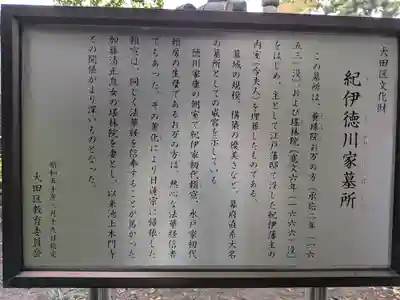 大田区文化財
紀伊徳川家墓所
この墓所は、養珠院お万の方(承応二年〔一六
五三〕没)および瑤林院(寛文六年〔一六六六〕没)
をはじめ、主として江戸藩邸で没した紀伊藩主の
内室(今夫人)を埋葬したものである。
墓域の規模、構築の優美さなど、幕府直系大名
の墓所としての威容を示している。
徳川家康の側室で紀伊家初代頼宣、水戸家初代
頼房の生母であるお万の方は、熱心な法華経信者
でもあった。その養化により日蓮宗に帰依した
頼宣は、同じく法華経を信奉することが篤かった
加藤清正息女の瑤林院を妻とし、以来池上本門寺
との関係がより深いものとなった。
昭和五十年三月十九日指定
大田区教育委員会